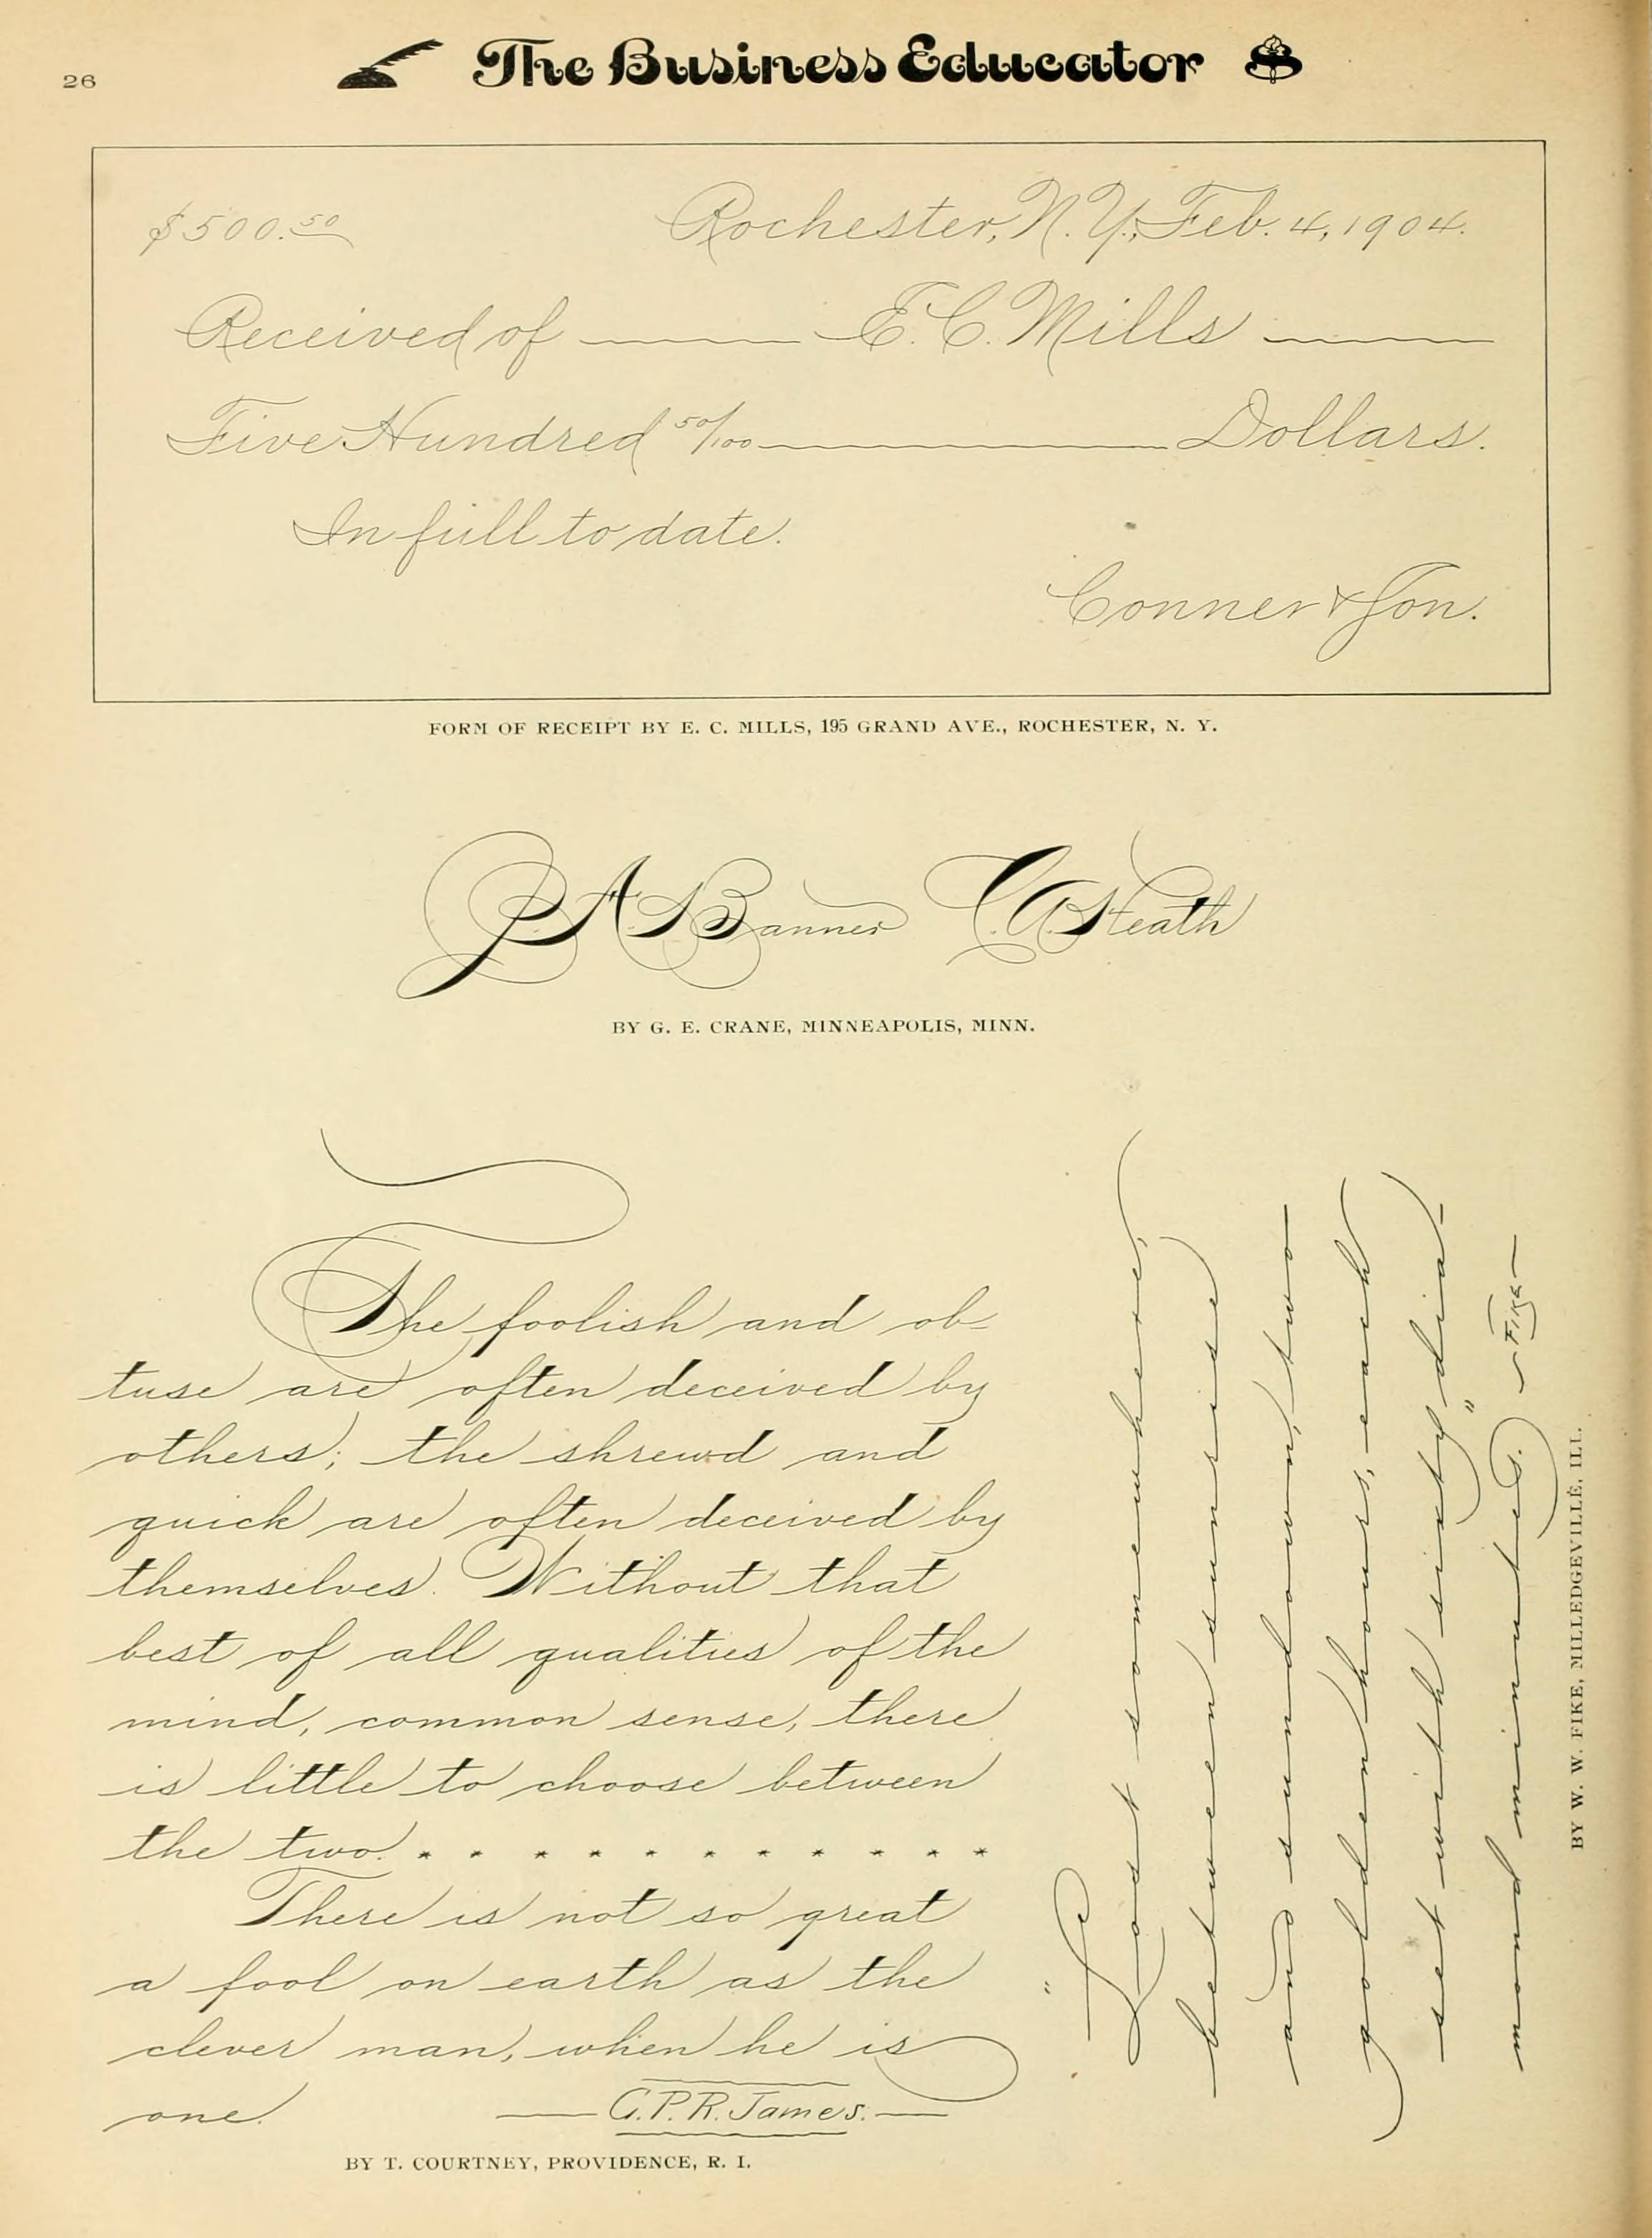 26
The Business Educator
$500.50 Rochester, N. Y., Feb. 4, 1904.
Received of E. C. Mills
Five Hundred 50/100 Dollars.
In full to date.
Conner & Son.
FORM OF RECEIPT BY E. C. MILLS, 195 GRAND AVE., ROCHESTER, N. Y.
P. A. Banner C. A. Heath
BY G. E. CRANE, MINNEAPOLIS, MINN.
The foolish and ob-
tuse are often deceived by
others; the shrewd and
quick are often deceived by
themselves. Without that
best of all qualities of the
mind, common sense, there
is little to choose between
the two. * * * * * * * * * * *
There is not so great
a fool on earth as the
clever man, when he is
one. G. P. R. James.
BY T. COURTNEY, PROVIDENCE, R. I.
"Lost somewhere,
between sunrise
and sundown, two
golden hours, each
set with sixty dia-
mond minutes." Fike
BY W. W. FIKE, MILLEDGEVILLE, ILL.